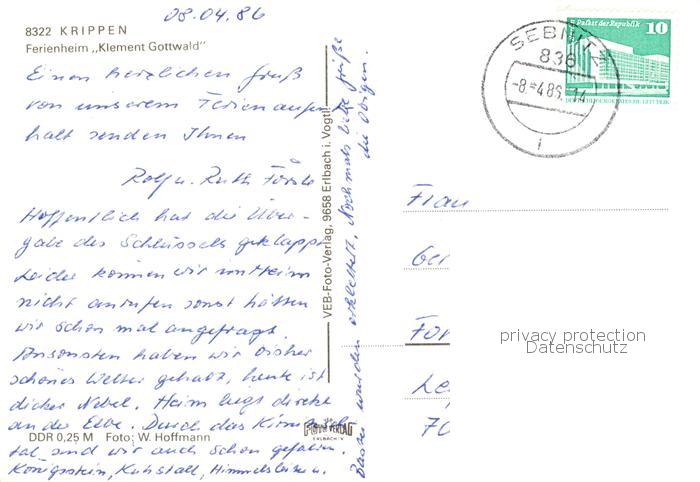 08.04.86
8322 KRIPPEN
Ferienheim „Klement Gottwald"
Einen herzlichen Gruß
von unserem Ferienaufent
halt senden Ihnen
Rolf u. Ruth
Hoffentlich hat die Über-
gabe des Schlüssels geklappt
Leider können wir im Heim
nicht anrufen sonst hätten
wir schon mal angefragt.
Ansonsten haben wir bisher
schönes Wetter gehabt, heute ist
dicker Nebel. Heim liegt direkt
an der Elbe. Durch das
tal sind wir auch schon gefahren.
Königstein, Kuhstall, Himmelsleiter u.
wurden erklettert. Nochmals liebe Grüße
die Obigen.
DDR 0,25 M Foto: W. Hoffmann
VEB-Foto-Verlag, 9658 Erlbach i. Vogtl.
FOTO VERLAG
ERLBACH/V.
SEBNITZ
836
-8.-4.86.-14
i
Palast der Republik 10
DEUTSCHE DEMOKRATISCHE REPUBLIK
Frau
Ger
For
Le
70
privacy protection
Datenschutz